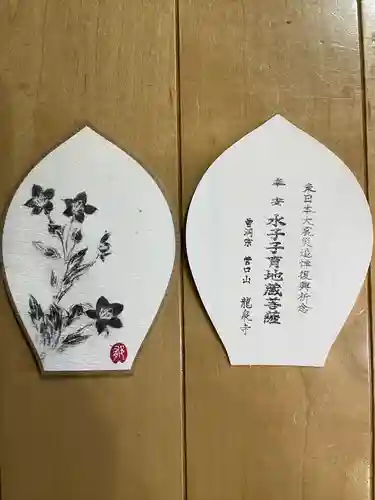 東日本大震災追悼復興祈念
奉安 水子子育地蔵菩薩
曹洞宗 営口山 龍泉寺